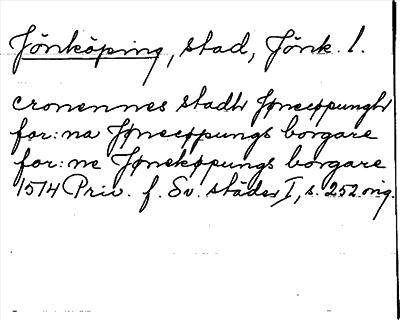 Jönköping, stad, Jönk. l.
cronennes stadtr Jøneøpunghr
for:na Jøneøpungs borgare
for:ne Jønekøpungs borgare
1514 Priv. f. Sv. städer I, s. 252 orig.